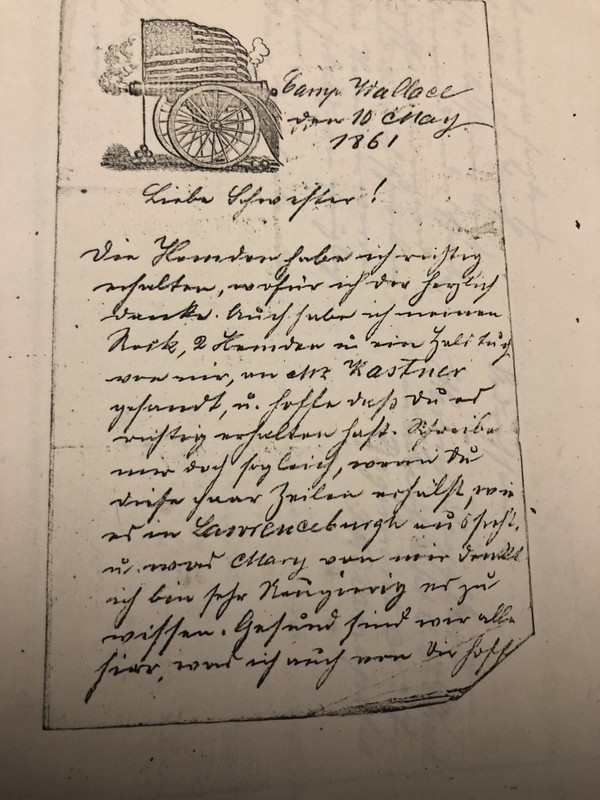 Camp Wallace
den 10 May
1861
Liebe Schwester!
Die Hemden habe ich richtig
erhalten, wofür ich dir herzlich
danke. Auch habe ich meinen
Rock, 2 Hemden u ein Halstuch
von mir, an Mr Kastner
gesandt, u. hoffe daß du es
richtig erhalten hast. Schreibe
mir doch sogleich, wenn du
diese paar Zeilen erhälst, wie
es in Lawrenceburgh aussieht,
u. was Mary von mir denkt
ich bin sehr Neugierig es zu
wissen. Gesund sind wir alle
hier, was ich auch von Dir hoffe